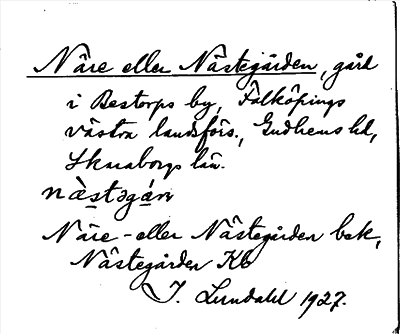 Näre eller Nästegården, gård
i Bestorps by, Falköpings
västra landsförs., Gudhems hd,
Skaraborgs län.
næ̀stəgán
Näre- eller Nästegården bek,
Nästegården Kb
J. Lundahl 1927.